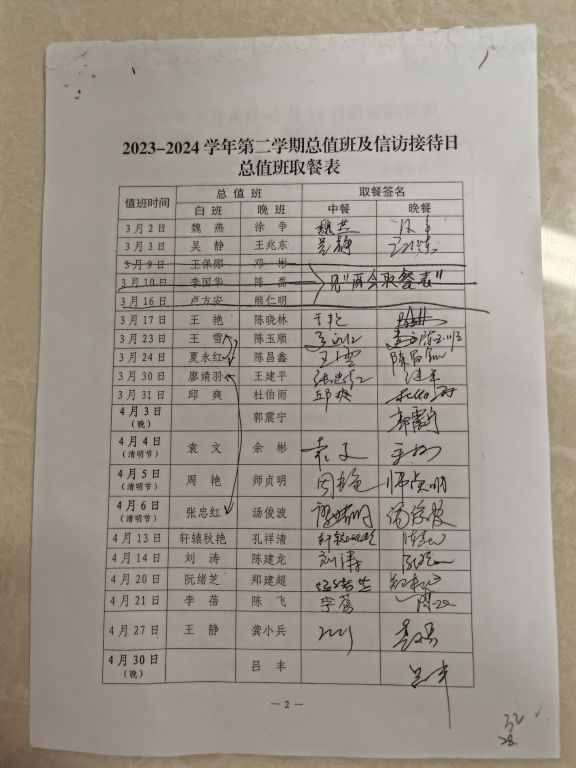 2023-2024 学年第二学期总值班及信访接待日
总值班取餐表
值班时间 总值班 取餐签名
白班 晚班 中餐 晚餐
3月2日 魏燕 徐争 魏燕
3月3日 吴静 王兆东 吴静 王兆东
3月9日 王保郧 邓彬
3月10日 李国华 陈磊 见"两会取餐表"
3月16日 卢方安 熊仁明
3月17日 王艳 陈晓林 王艳
3月23日 王雪 陈玉顺
3月24日 夏永红 陈昌鑫 王雪
3月30日 廖靖羽 王建平 张忠红 建平
3月31日 邱爽 杜伯雨 邱爽 杜伯雨
4月3日 郭震宁 郭震宁
(晚)
4月4日 袁文 余彬 袁文
(清明节)
4月5日 周艳 师贞明 周艳 师贞明
(清明节)
4月6日 张忠红 汤俊波 廖靖羽 汤俊波
(清明节)
4月13日 轩辕秋艳 孔祥清 轩辕秋艳
4月14日 刘涛 陈建龙 刘涛
4月20日 阮绪芝 郑建超 阮绪芝
4月21日 李蓓 陈飞 李蓓
4月27日 王静 龚小兵
4月30日 吕丰 吕丰
(晚)
— 2 —